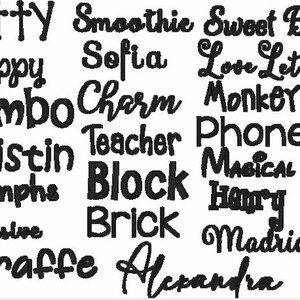 rty
ppy
mbo
istin
mphs
sive
raffe
Smoothie
Sofia
Charm
Teacher
Block
Brick
Alexandra
Sweet
Love Let
Monkey
Phone
Magical
Henry
Madrid